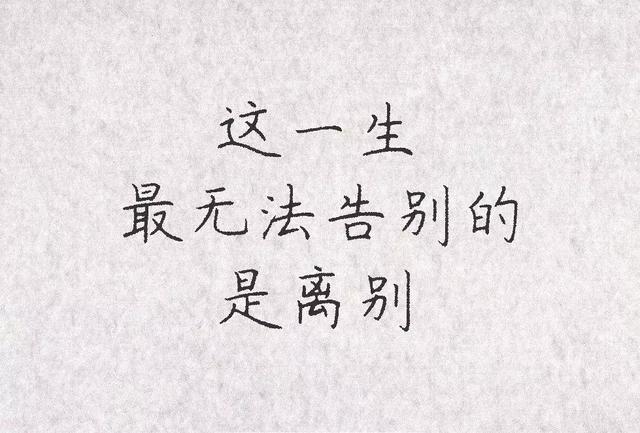 这一生
最无法告别的
是离别